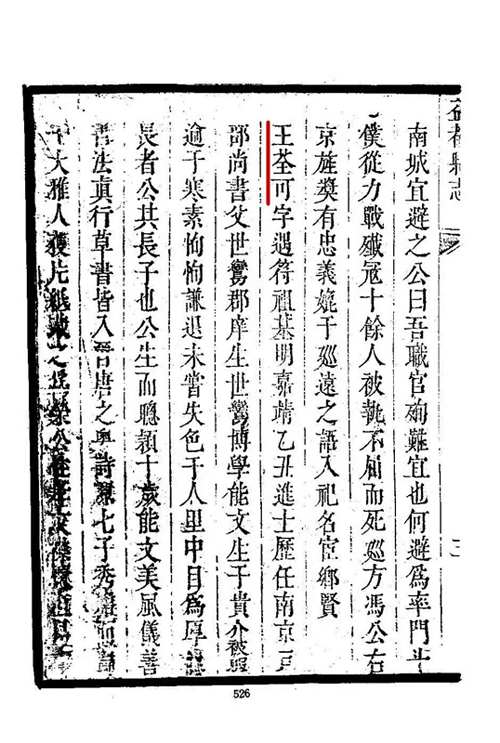 益都縣志
南城宜避之公曰吾職官殉難宜也何避爲率門斗
僕從力戰殲冦十餘人被執不屈而死巡方馮公右
京旌奬有忠義媲于廵遠之語入祀名宦鄉賢
王荃可字遇符祖基明嘉靖乙丑進士歷任南京
部尚書父世鸞郡庠生世鸞博學能文生于貴介被服
逾于寒素恂恂謙退未嘗失色于人里中目爲厚
長者公其長子也公生而聰穎十歲能文美風儀善
書法眞行草書皆入晉唐之奧詩 七子秀
大雅人獲片紙
526